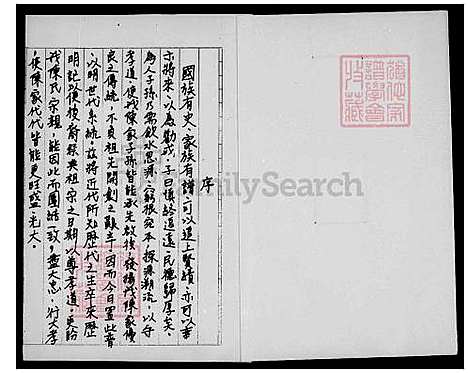 序
國族有史、家族有譜、可以追上賢績、亦可以垂
示將來、以為勸戒、子曰慎終追遠、民德歸厚矣、
為人子孫乃需飲水思源、窮根究本、探源溯流、以守
孝道、使我陳家子孫皆能承先啟後、發揚我陳家優
良之傳統、不負祖先開創之艱辛、因而今日置此書
以明世代系統、茲將近代所知歷代之生卒來歷
明記以便後裔祭奠祖宗之日期、以尊孝道、更盼
我陳氏宗親、能因此而團結一致、盡大忠、行大孝
、使陳家代代皆能更旺盛光大。
譜系家
譜學會
收藏
FamilySearch